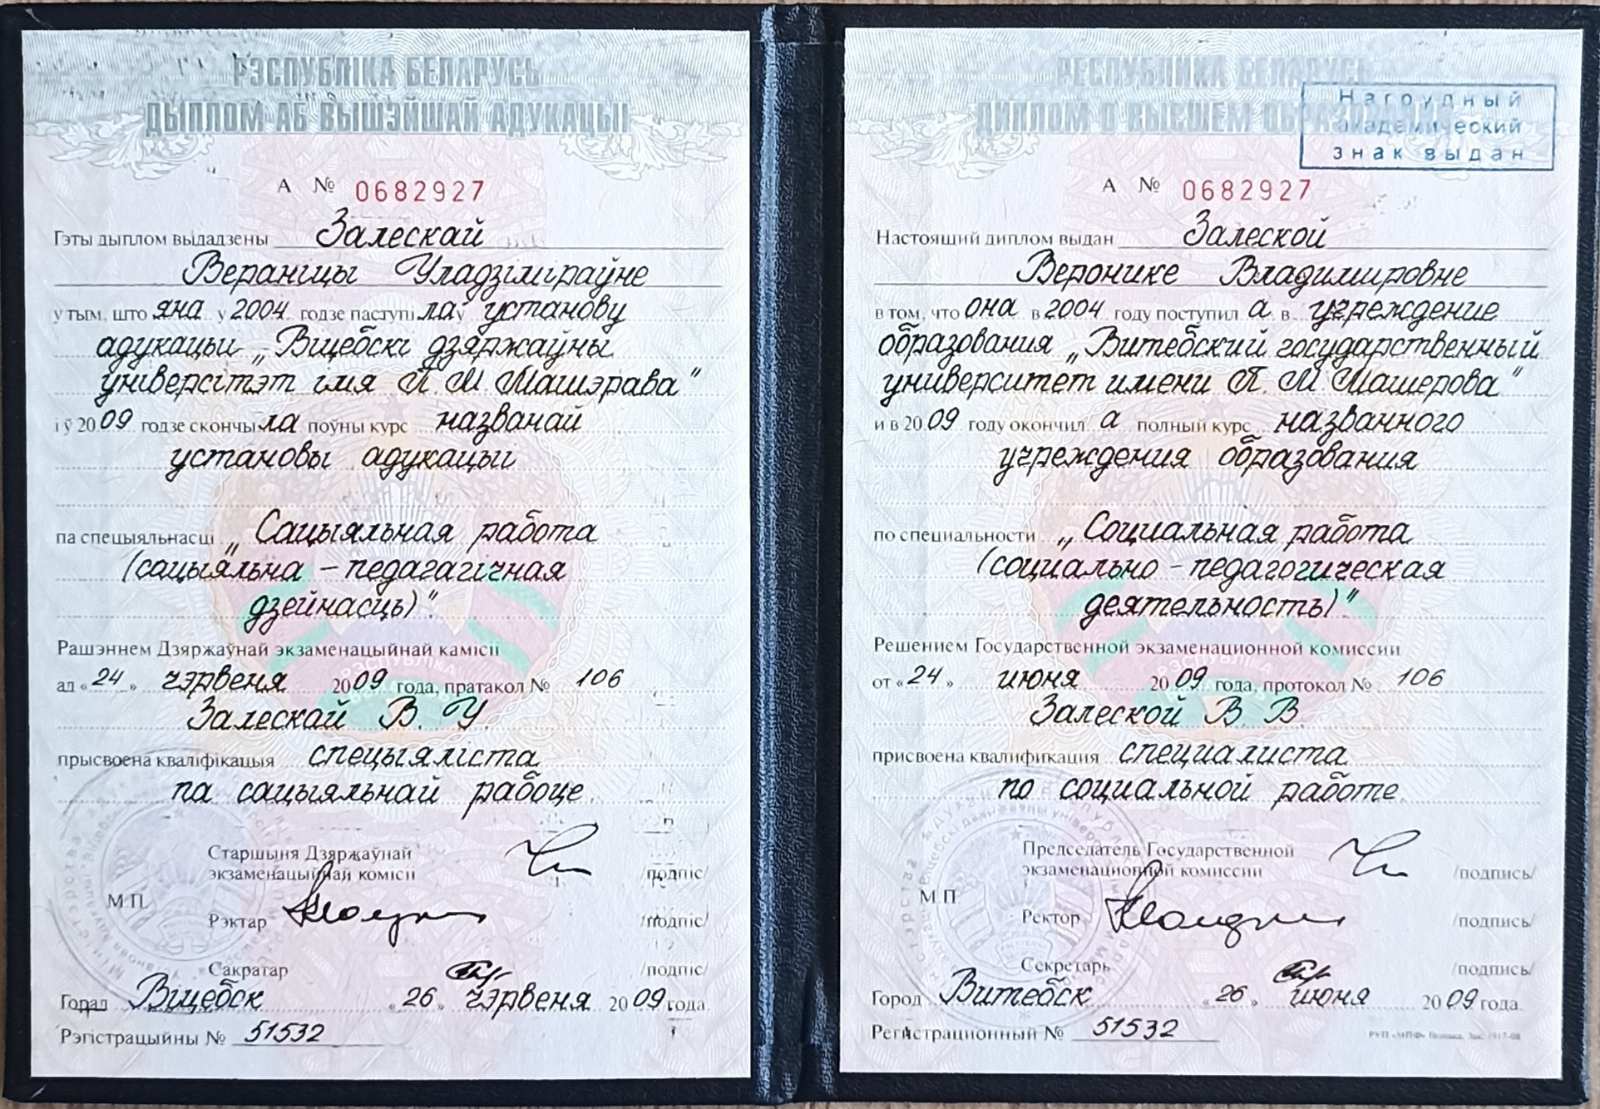 РЭСПУБЛІКА БЕЛАРУСЬ
ДЫПЛОМ АБ ВЫШЭЙШАЙ АДУКАЦЫІ
А № 0682927
Гэты дыплом выдадзены Залескай
Вераніцы Уладзіміраўне
у тым, што яна у 2004 годзе паступіла ў установу
адукацыи „Віцебскі дзяржаўны
універсітэт імя П. М. Машэрава"
і ў 2009 годзе скончыла поўны курс названай
установы адукацыи
па спецыяльнасці „Сацыяльная работа
(сацыяльна - педагагічная
дзейнасць)".
Рашэннем Дзяржаўнай экзаменацыйнай камісіі
ад «24» чэрвеня 2009 года, пратакол № 106
Залескай В. У.
прысвоена кваліфікацыя спецыяліста
па сацыяльнай рабоце.
Старшыня Дзяржаўнай
экзаменацыйнай камісіі /подпіс/
М.П.
Рэктар /подпіс/
Сакратар /подпіс/
Горад Віцебск «26» чэрвеня 2009 года.
Рэгістрацыйны № 51532
РЕСПУБЛИКА БЕЛАРУСЬ
ДИПЛОМ О ВЫСШЕМ ОБРАЗОВАНИИ
Нагрудный
академический
знак выдан
А № 0682927
Настоящий диплом выдан Залеской
Веронике Владимировне
в том, что она в 2004 году поступил а в учреждение
образования „Витебский государственный
университет имени П. М. Машерова"
и в 2009 году окончил а полный курс названного
учреждения образования
по специальности „Социальная работа
(социально - педагогическая
деятельность)"
Решением Государственной экзаменационной комиссии
от «24» июня 2009 года, протокол № 106
Залеской В. В.
присвоена квалификация специалиста
по социальной работе.
Председатель Государственной
экзаменационной комиссии /подпись/
М.П.
Ректор /подпись/
Секретарь /подпись/
Город Витебск «26» июня 2009 года.
Регистрационный № 51532